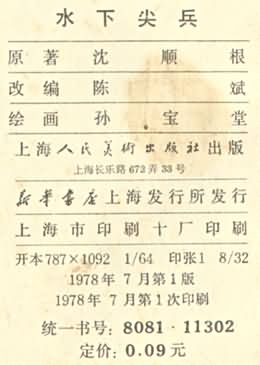 水下尖兵
原著 沈顺根
改编 陈斌
绘画 孙宝堂
上海人民美术出版社出版
上海长乐路672弄33号
新华书店上海发行所发行
上海市印刷十厂印刷
开本787×1092 1/64 印张1 8/32
1978年7月第1版
1978年7月第1次印刷
统一书号:8081·11302
定价:0.09元